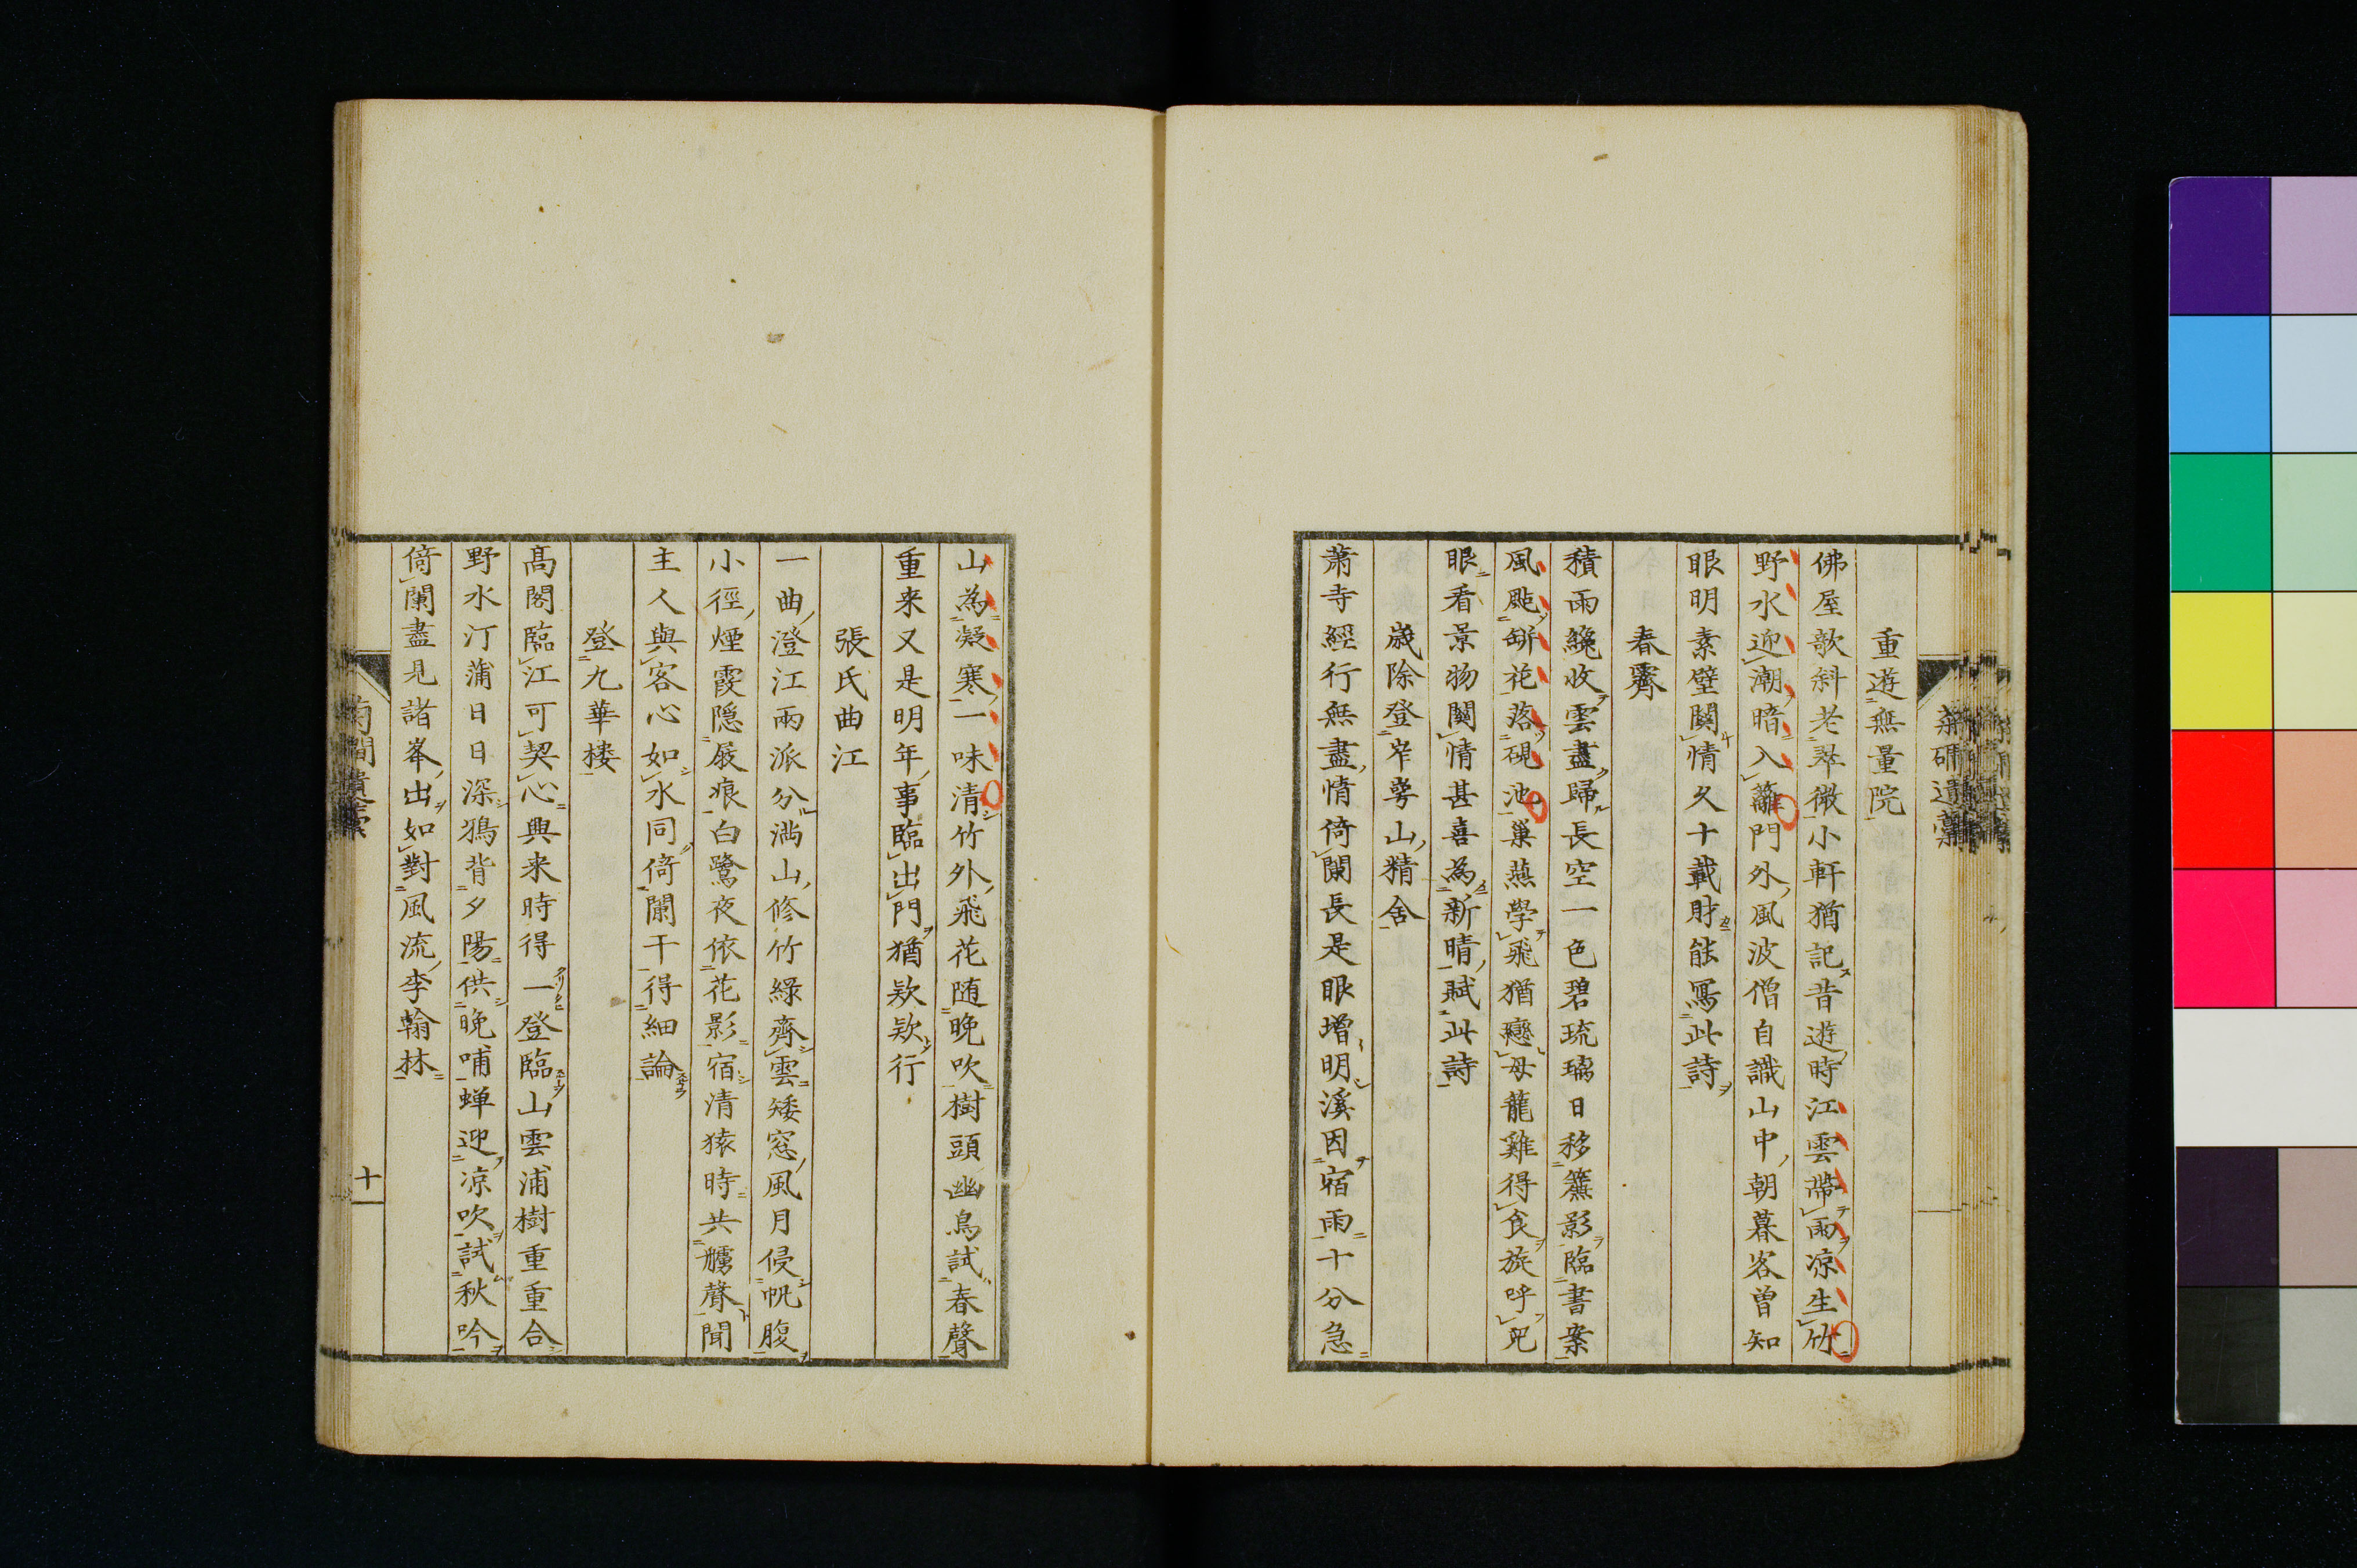 重遊無量院
佛屋欹斜老翠微小軒猶記昔遊時江雲帶雨凉生竹
野水迎潮暗入籬門外風波僧自識山中朝暮客曾知
眼明素壁関情久十載財能寫此詩
春霽
積雨纔收雲盡歸長空一色碧琉璃日移簾影臨書案
風颭缾花落硯池巢燕學飛猶戀母龍雞得食旋呼兒
眼看景物関情甚喜為新晴賦此詩
歲除登窄崿山精舍
蕭寺經行無盡情倚闌長是眼增明溪因宿雨十分急
山為凝寒一味清竹外飛花随晚吹樹頭幽鳥試春聲
重来又是明年事臨出門猶欵欵行
張氏曲江
一曲澄江兩派分満山修竹綠齊雲矮窓風月侵帆腹
小徑煙霞隠屐痕白鷺夜依花影宿清猿時共艣聲聞
主人與客心如水同倚闌干得細論
登九華楼
髙閣臨江可契心興来時得一登臨山雲浦樹重重合
野水汀蒲日日深鴉背夕陽供晚哺蝉迎凉吹試秋吟
倚闌盡見諸峯出如對風流李翰林
十